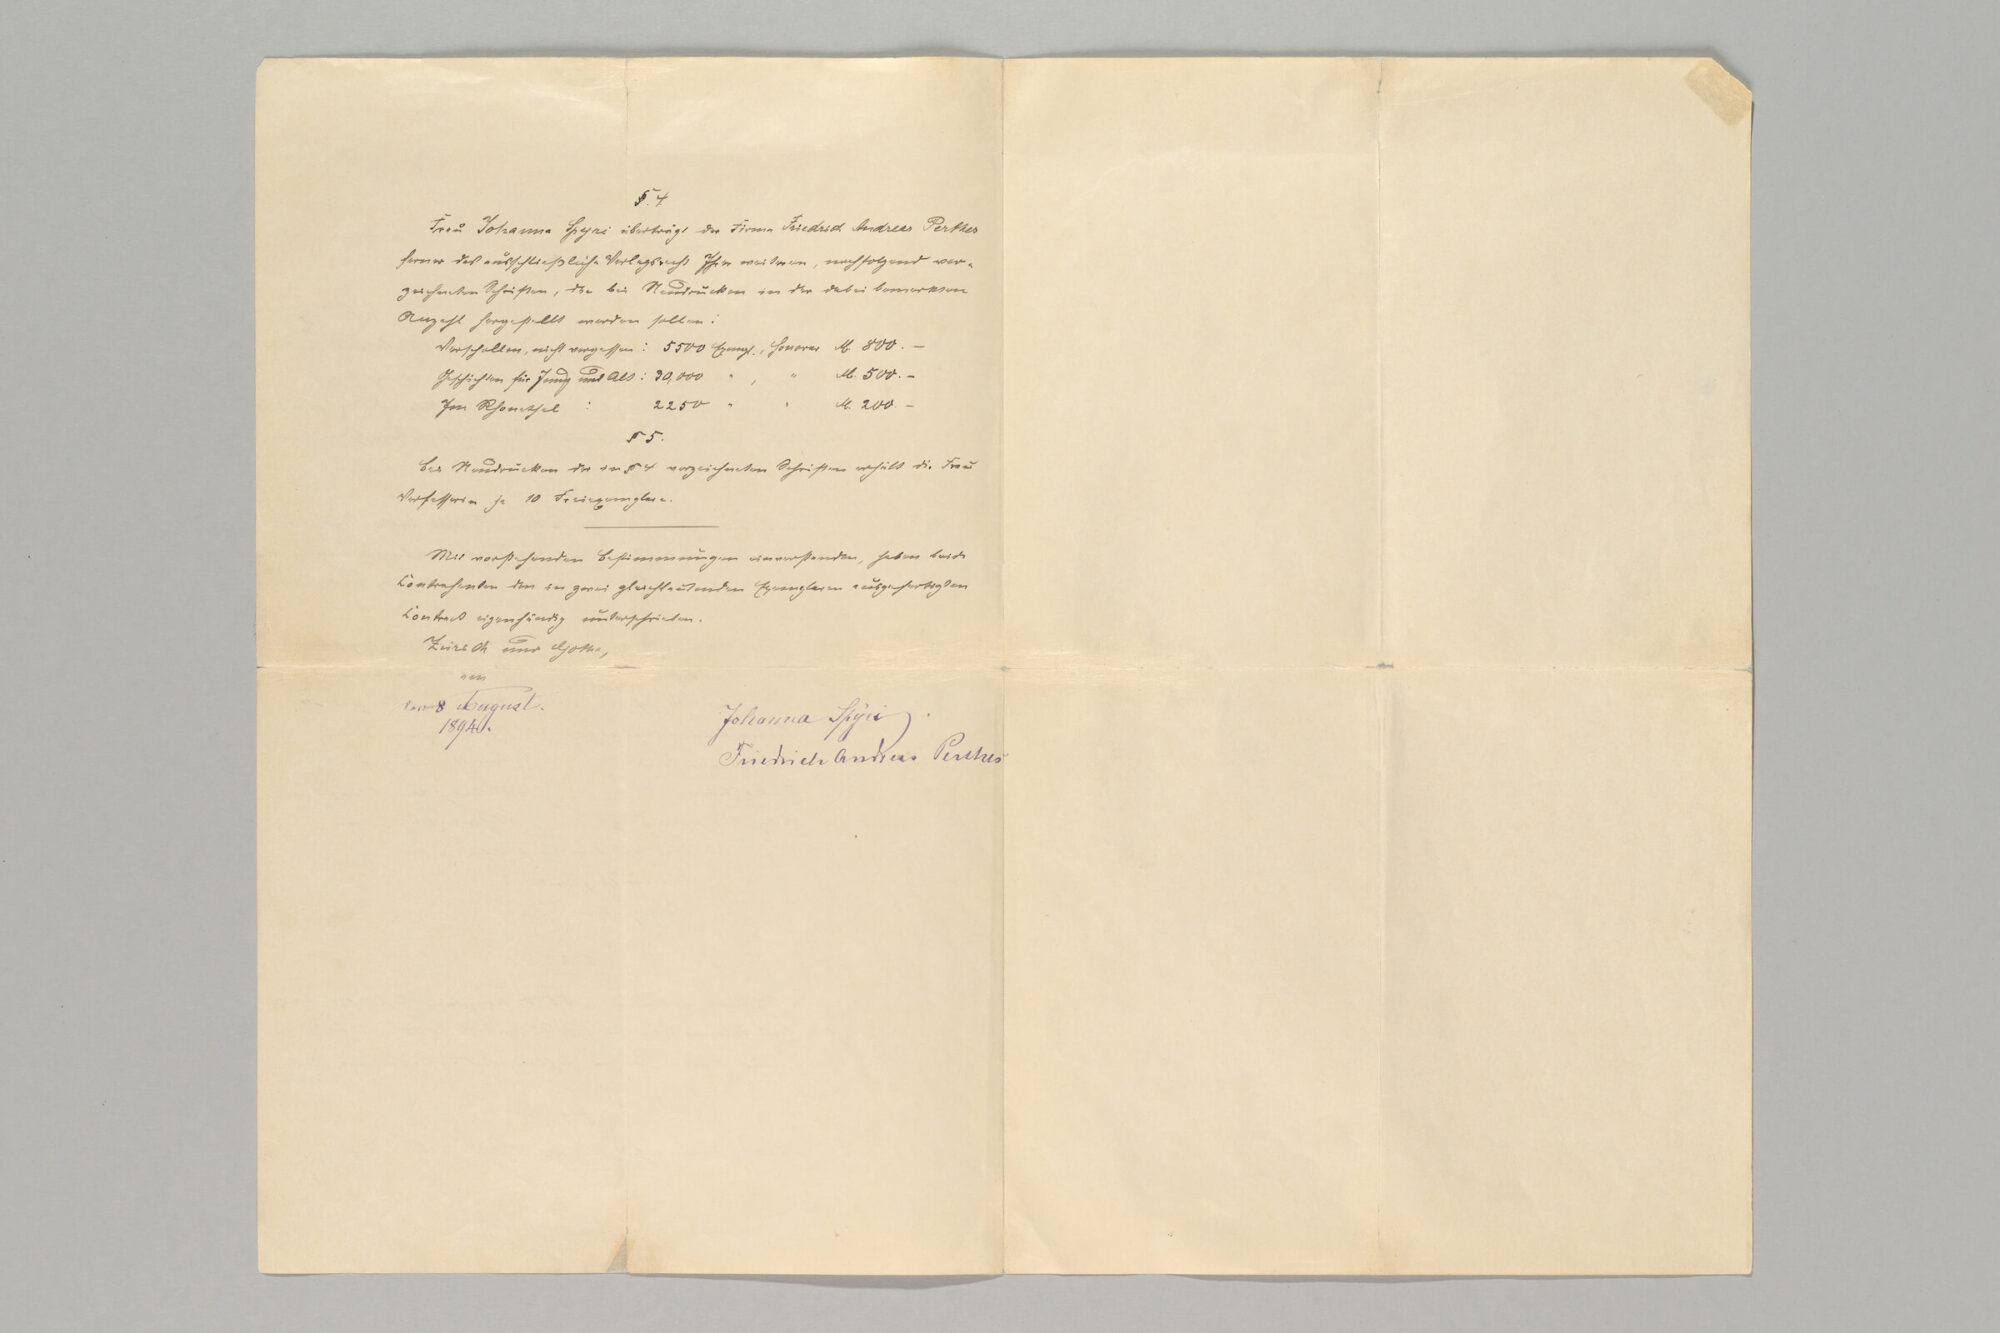 §. 4
Frau Johanna Spyri überträgt der Firma Friedrich Andreas Perthes
ferner das ausschließliche Verlagsrecht Ihrer weiteren, nachfolgend ver-
zeichneten Schriften, die bei Neudrucken in der dabei bemerkten
Anzahl hergestellt werden sollen:
Verschollen, nicht vergessen: 5500 Exempl., Honorar M. 800. —
Geschichten für Jung und Alt: 30,000 " , " M. 500. —
Im Rhonethal : 2250 " " M. 200. —
§ 5.
Bei Neudrucken der in § 4 verzeichneten Schriften erhält die Frau
Verfasserin je 10 Freiexemplare.
Mit vorstehenden Bestimmungen einverstanden, haben beide
Contrahenten den in zwei gleichlautenden Exemplaren ausgefertigten
Contract eigenhändig unterschrieben.
Zürich und Gotha,
am
den 8 August.
1894.
Johanna Spyri.
Friedrich Andreas Perthes